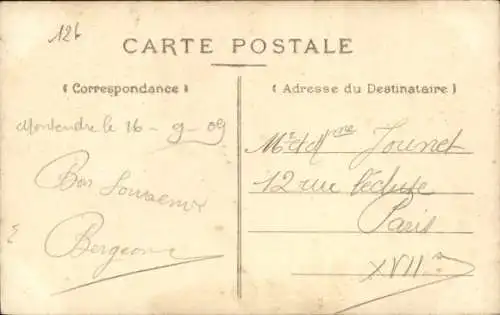 126
CARTE POSTALE
(Correspondance)
(Adresse du Destinataire)
Montendre le 16 - 9 - 09
Bon Souvenir
Bergeon
Mr et Mme Jounet
12 rue Lécluse
Paris
XVIIe